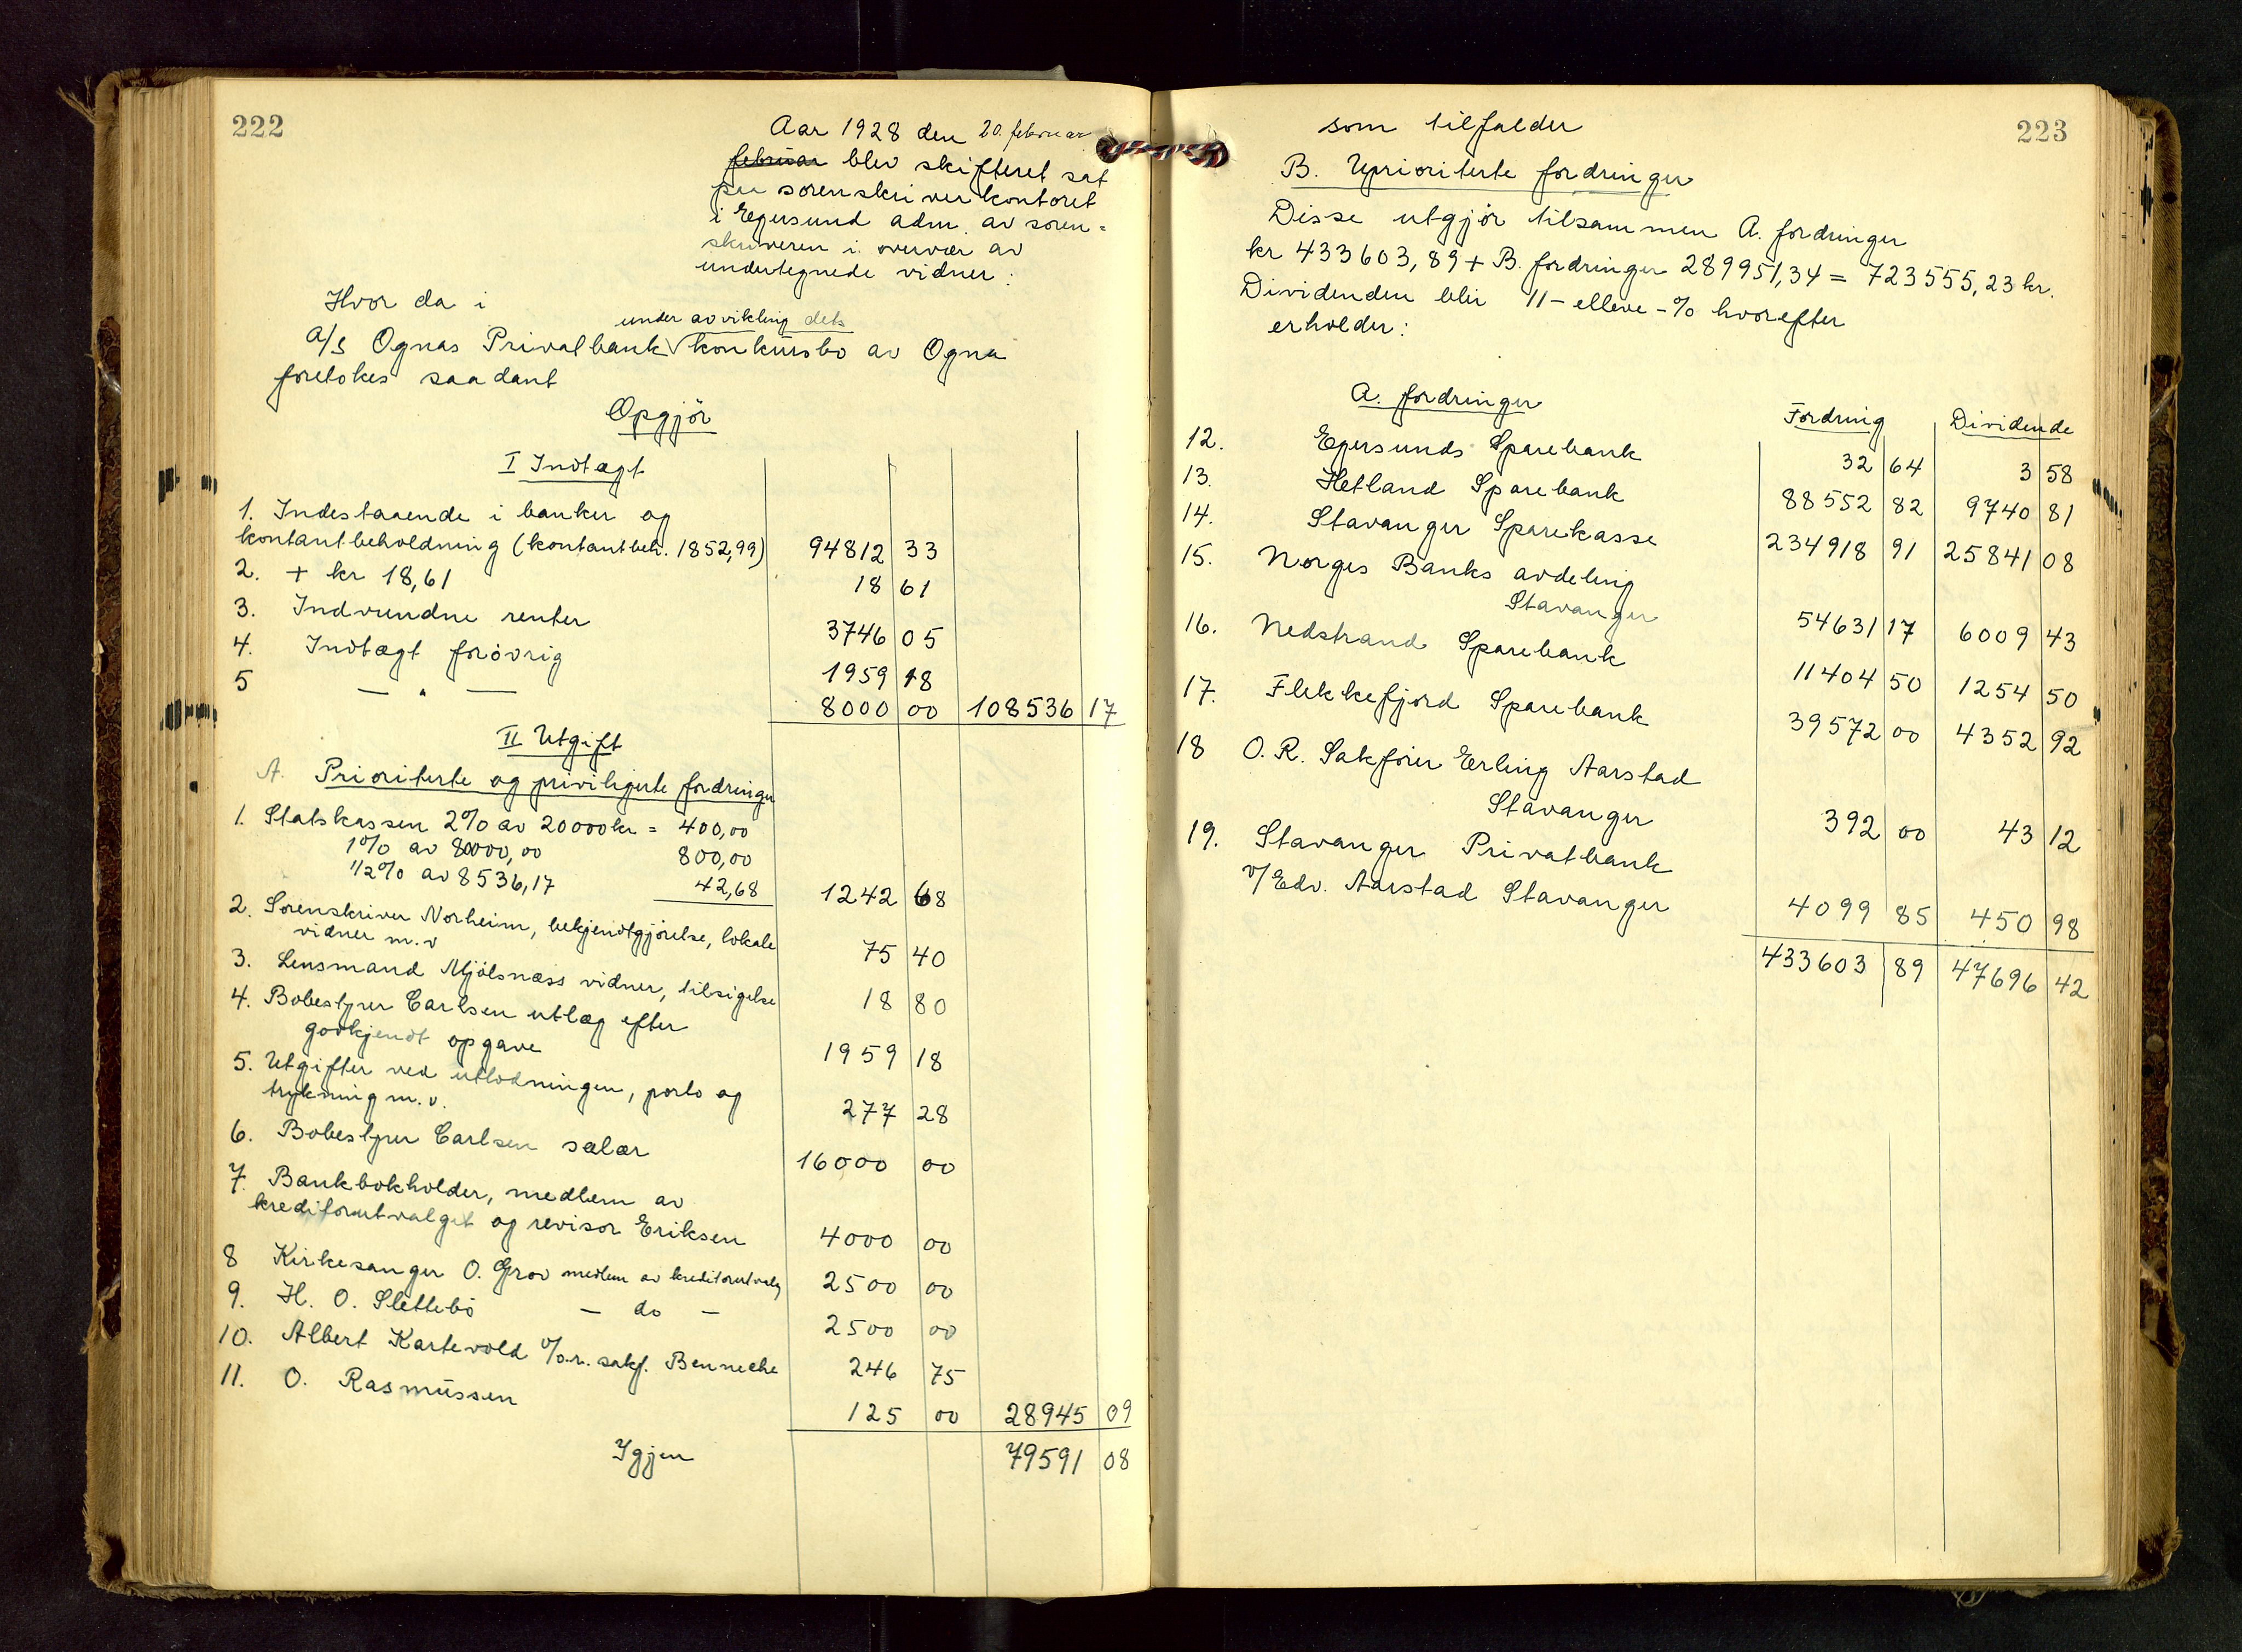 222
Aar 1928 den 20. februar
februar blev skifteret sat
paa sorenskriverkontoret
i Egersund adm. av soren=
skriveren i overvær av
undertegnede vidner:
Hvor da i
under avvikling dets
A/S Ognas Privatbank √ konkursbo av Ogna
foretokes saadant
Opgjör
I Indtægt
1. Indestaaende i banker og
kontantbeholdning (kontantbeh. 1852,99) 94812 33
2. + kr 18,61 18 61
3. Indvundne renter 3746 05
4. Indtægt forøvrig 1959 18
5 — " — 8000 00 108536 17
II Utgift
A. Prioriterte og priviligerte fordringer
1. Statskassen 2% av 20000 kr = 400,00
1% av 80000,00 800,00
1/2% av 8536,17 42,68 1242 68
2. Sorenskriver Norheim, bekjendtgjörelse, lokale
vidner m.v 75 40
3. Lensmand Mjölsnæss vidner, tilsigelse 18 80
4. Bobestyrer Carlsen utlæg efter
godkjendt opgave 1959 18
5. Utgifter ved utlodningen, porto og
trykning m.v. 277 28
6. Bobestyrer Carlsen salær 16000 00
7. Bankbokholder, medlem av
kreditorutvalget og revisor Eriksen 4000 00
8 Kirkesanger O. Grov medlem av kreditorutvalg 2500 00
9. H. O. Slettebö — do — 2500 00
10. Albert Kartevold v/o.r. sakf. Benneche 246 75
11. O. Rasmussen 125 00 28945 09
Igjen 79591 08
223
som tilfalder
B. Uprioriterte fordringer
Disse utgjör tilsammen A. fordringer
kr 433603,89 + B. fordringer 289951,34 = 723555,23 kr.
Dividenden blir 11 - elleve - % hvorefter
erholder:
A. fordringer Fordring Dividende
12. Egersunds Sparebank 32 64 3 58
13. Hetland Sparebank 88552 82 9740 81
14. Stavanger Sparekasse 234918 91 25841 08
15. Norges Banks avdeling
Stavanger 54631 17 6009 43
16. Nedstrand Sparebank 11404 50 1254 50
17. Flekkefjord Sparebank 39572 00 4352 92
18 O. R. Sakfører Erling Aarstad
Stavanger 392 00 43 12
19. Stavanger Privatbank
v/Edv. Aarstad Stavanger 4099 85 450 98
433603 89 47696 42